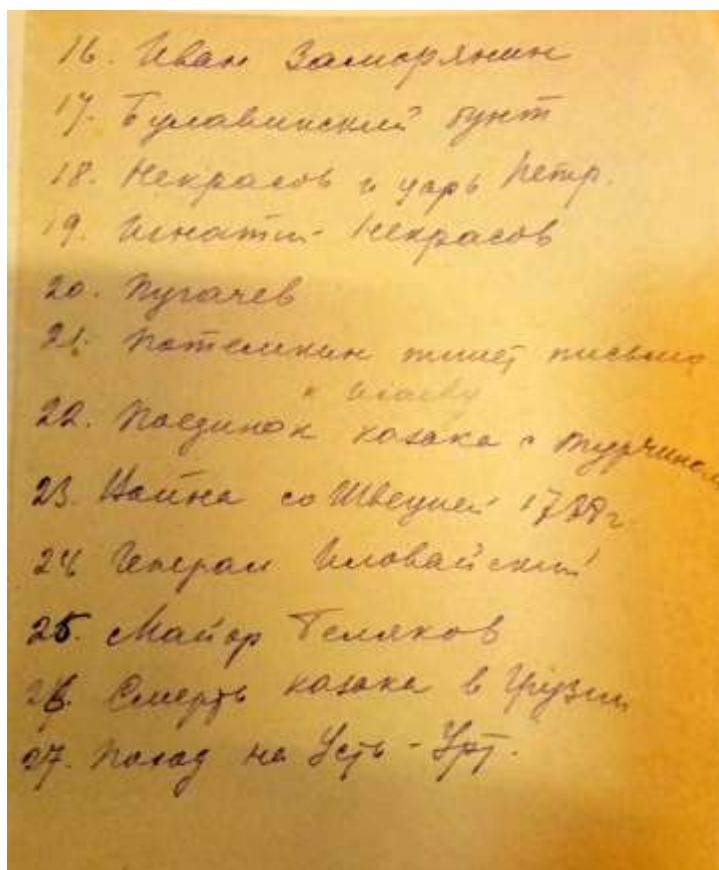 16. Иван Заморянин
17. Булавинский бунт
18. Некрасов и царь Петр.
19. Игнатий Некрасов
20. Пугачев
21. Потемкин пишет письмо
к
22. Поединок казака с турчином
23. Война со Швецией
24 Генерал Иловайский
25. Майор Теляков
26. Смерть казака в Грузии
27. Поход на Усть-Урт.